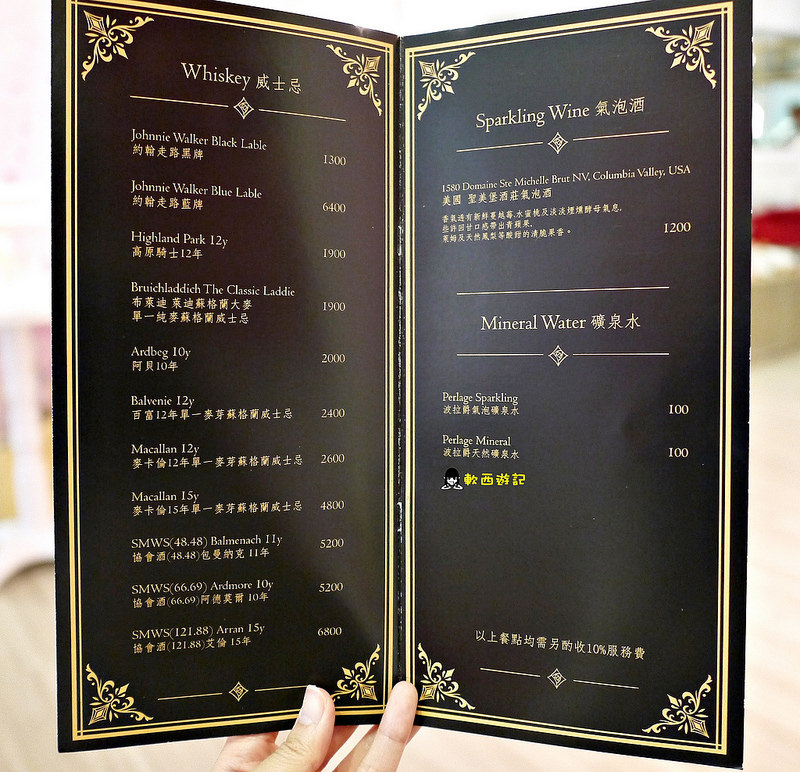 Whiskey 威士忌
Johnnie Walker Black Lable
約翰走路黑牌
1300
Johnnie Walker Blue Lable
約翰走路藍牌
6400
Highland Park 12y
高原騎士12年
1900
Bruichladdich The Classic Laddie
布萊迪 萊迪蘇格蘭大麥
單一純麥蘇格蘭威士忌
1900
Ardbeg 10y
阿貝10年
2000
Balvenie 12y
百富12年單一麥芽蘇格蘭威士忌
2400
Macallan 12y
麥卡倫12年單一麥芽蘇格蘭威士忌
2600
Macallan 15y
麥卡倫15年單一麥芽蘇格蘭威士忌
4800
SMWS(48.48) Balmenach 11y
協會酒(48.48)包曼納克 11年
5200
SMWS(66.69) Ardmore 10y
協會酒(66.69)阿德莫爾 10年
5200
SMWS(121.88) Arran 15y
協會酒(121.88)艾倫 15年
6800
Sparkling Wine 氣泡酒
1580 Domaine Ste Michelle Brut NV, Columbia Valley, USA
美國 聖美堡酒莊氣泡酒
香氣透有新鮮蔓越莓,水蜜桃及淡淡煙燻酵母氣息,
些許回甘口感帶出青蘋果,
萊姆及天然鳳梨等酸甜的清脆果香。
1200
Mineral Water 礦泉水
Perlage Sparkling
波拉爵氣泡礦泉水
100
Perlage Mineral
波拉爵天然礦泉水
100
軟西遊記
以上餐點均需另酌收10%服務費